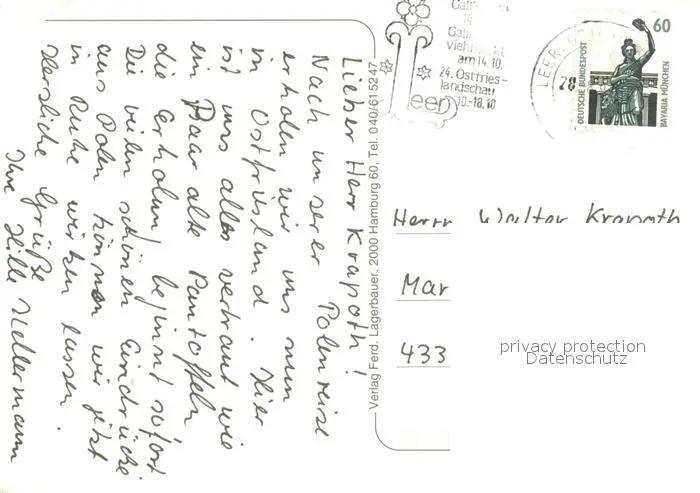 Lieber Herr Krapoth!
Nach unserer Polenreise
erholen wir uns nun
in Ostfriesland. Hier
ist uns alles vertraut wie
ein Paar alte Pantoffeln
die Erholung beginnt sofort
Die vielen schönen Eindrücke
aus Polen können wir jetzt
in Ruhe wirken lassen.
Herzliche Grüße
Ihre Hille Kellermann
Verlag Ferd. Lagerbauer, 2000 Hamburg 60, Tel. 040/615247
Galli
Viehmarkt
am 14.10.
24. Ostfries-
landschau
10.-18.10
leer
LEER
28
60
DEUTSCHE BUNDESPOST
BAVARIA MÜNCHEN
Herrn Walter Krapoth
Mar
433
privacy protection
Datenschutz